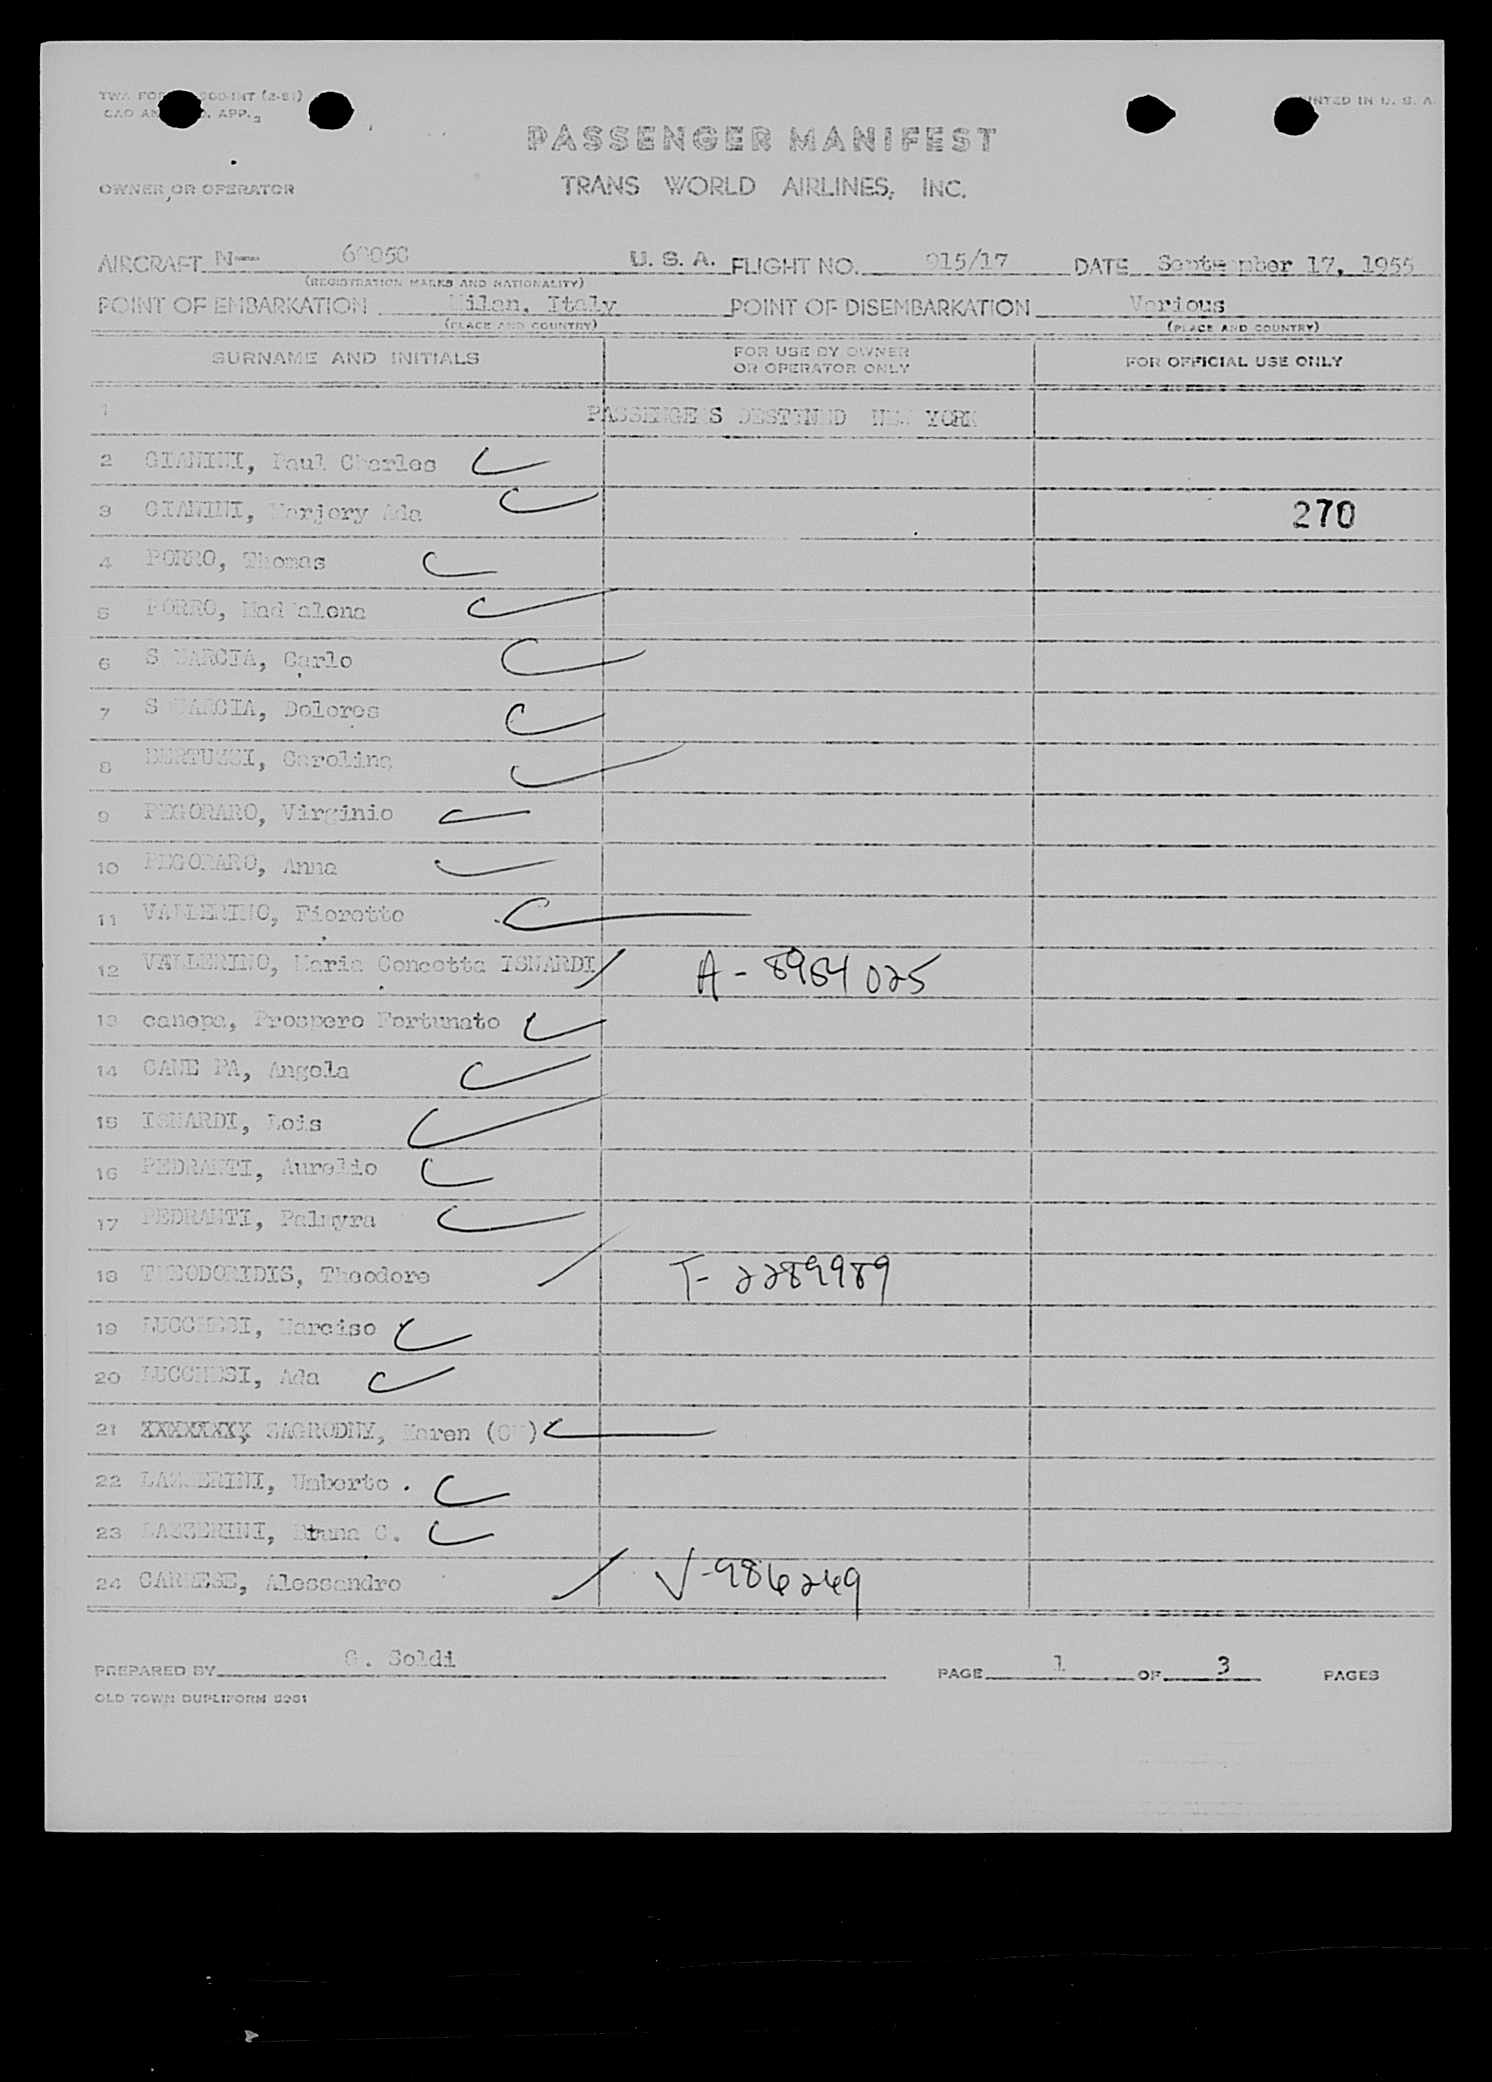 PRINTED IN U. S. A.
PASSENGER MANIFEST
OWNER OR OPERATOR
TRANS WORLD AIRLINES, INC.
AIRCRAFT N— U. S. A. FLIGHT NO. 915/17 DATE September 17, 1955
(REGISTRATION MARKS AND NATIONALITY)
POINT OF EMBARKATION Milan, Italy POINT OF DISEMBARKATION Various
(PLACE AND COUNTRY) (PLACE AND COUNTRY)
SURNAME AND INITIALS FOR USE BY OWNER OR OPERATOR ONLY FOR OFFICIAL USE ONLY
1 PASSENGERS DESTINED NEW YORK
2 GIANINI, Paul Charles
3 GIANINI, Marjory Ada 270
4 PORRO, Thomas
5 PORRO, Maddalena
6 SQUARCIA, Carlo
7 SQUARCIA, Dolores
8 BERTUZZI, Carolina
9 PEGORARO, Virginio
10 PEGORARO, Anna
11 VALLERINO, Fioretto
12 VALLERINO, Maria Concetta ISNARDI A-8984025
13 canepa, Prospero Fortunato
14 CANE PA, Angela
15 ISNARDI, Lois
16 PEDRANTI, Aurelio
17 PEDRANTI, Palmyra
18 THEODORIDIS, Theodore T-2289989
19 LUCCHESI, Narciso
20 LUCCHESI, Ada
21 XXXXXXXX ZAGRODNY, Karen
22 LAZZERINI, Umberto .
23 LAZZERINI, C.
24 Alessandro V-986269
PREPARED BY G. Soldi PAGE 1 OF 3 PAGES
OLD TOWN DUPLIFORM